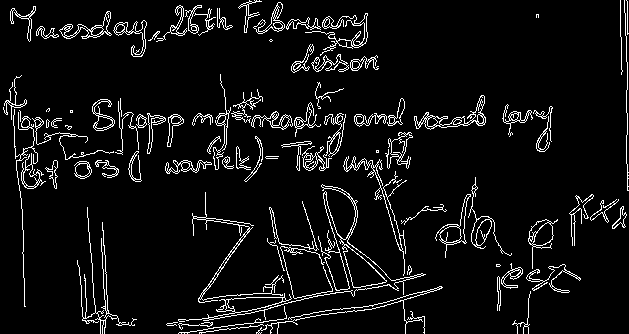 Tuesday, 26th February
Lesson
Topic: Shopping - reading and vocabulary
07 03 (wartek) - Test unit 4
ZHR
da p
jest